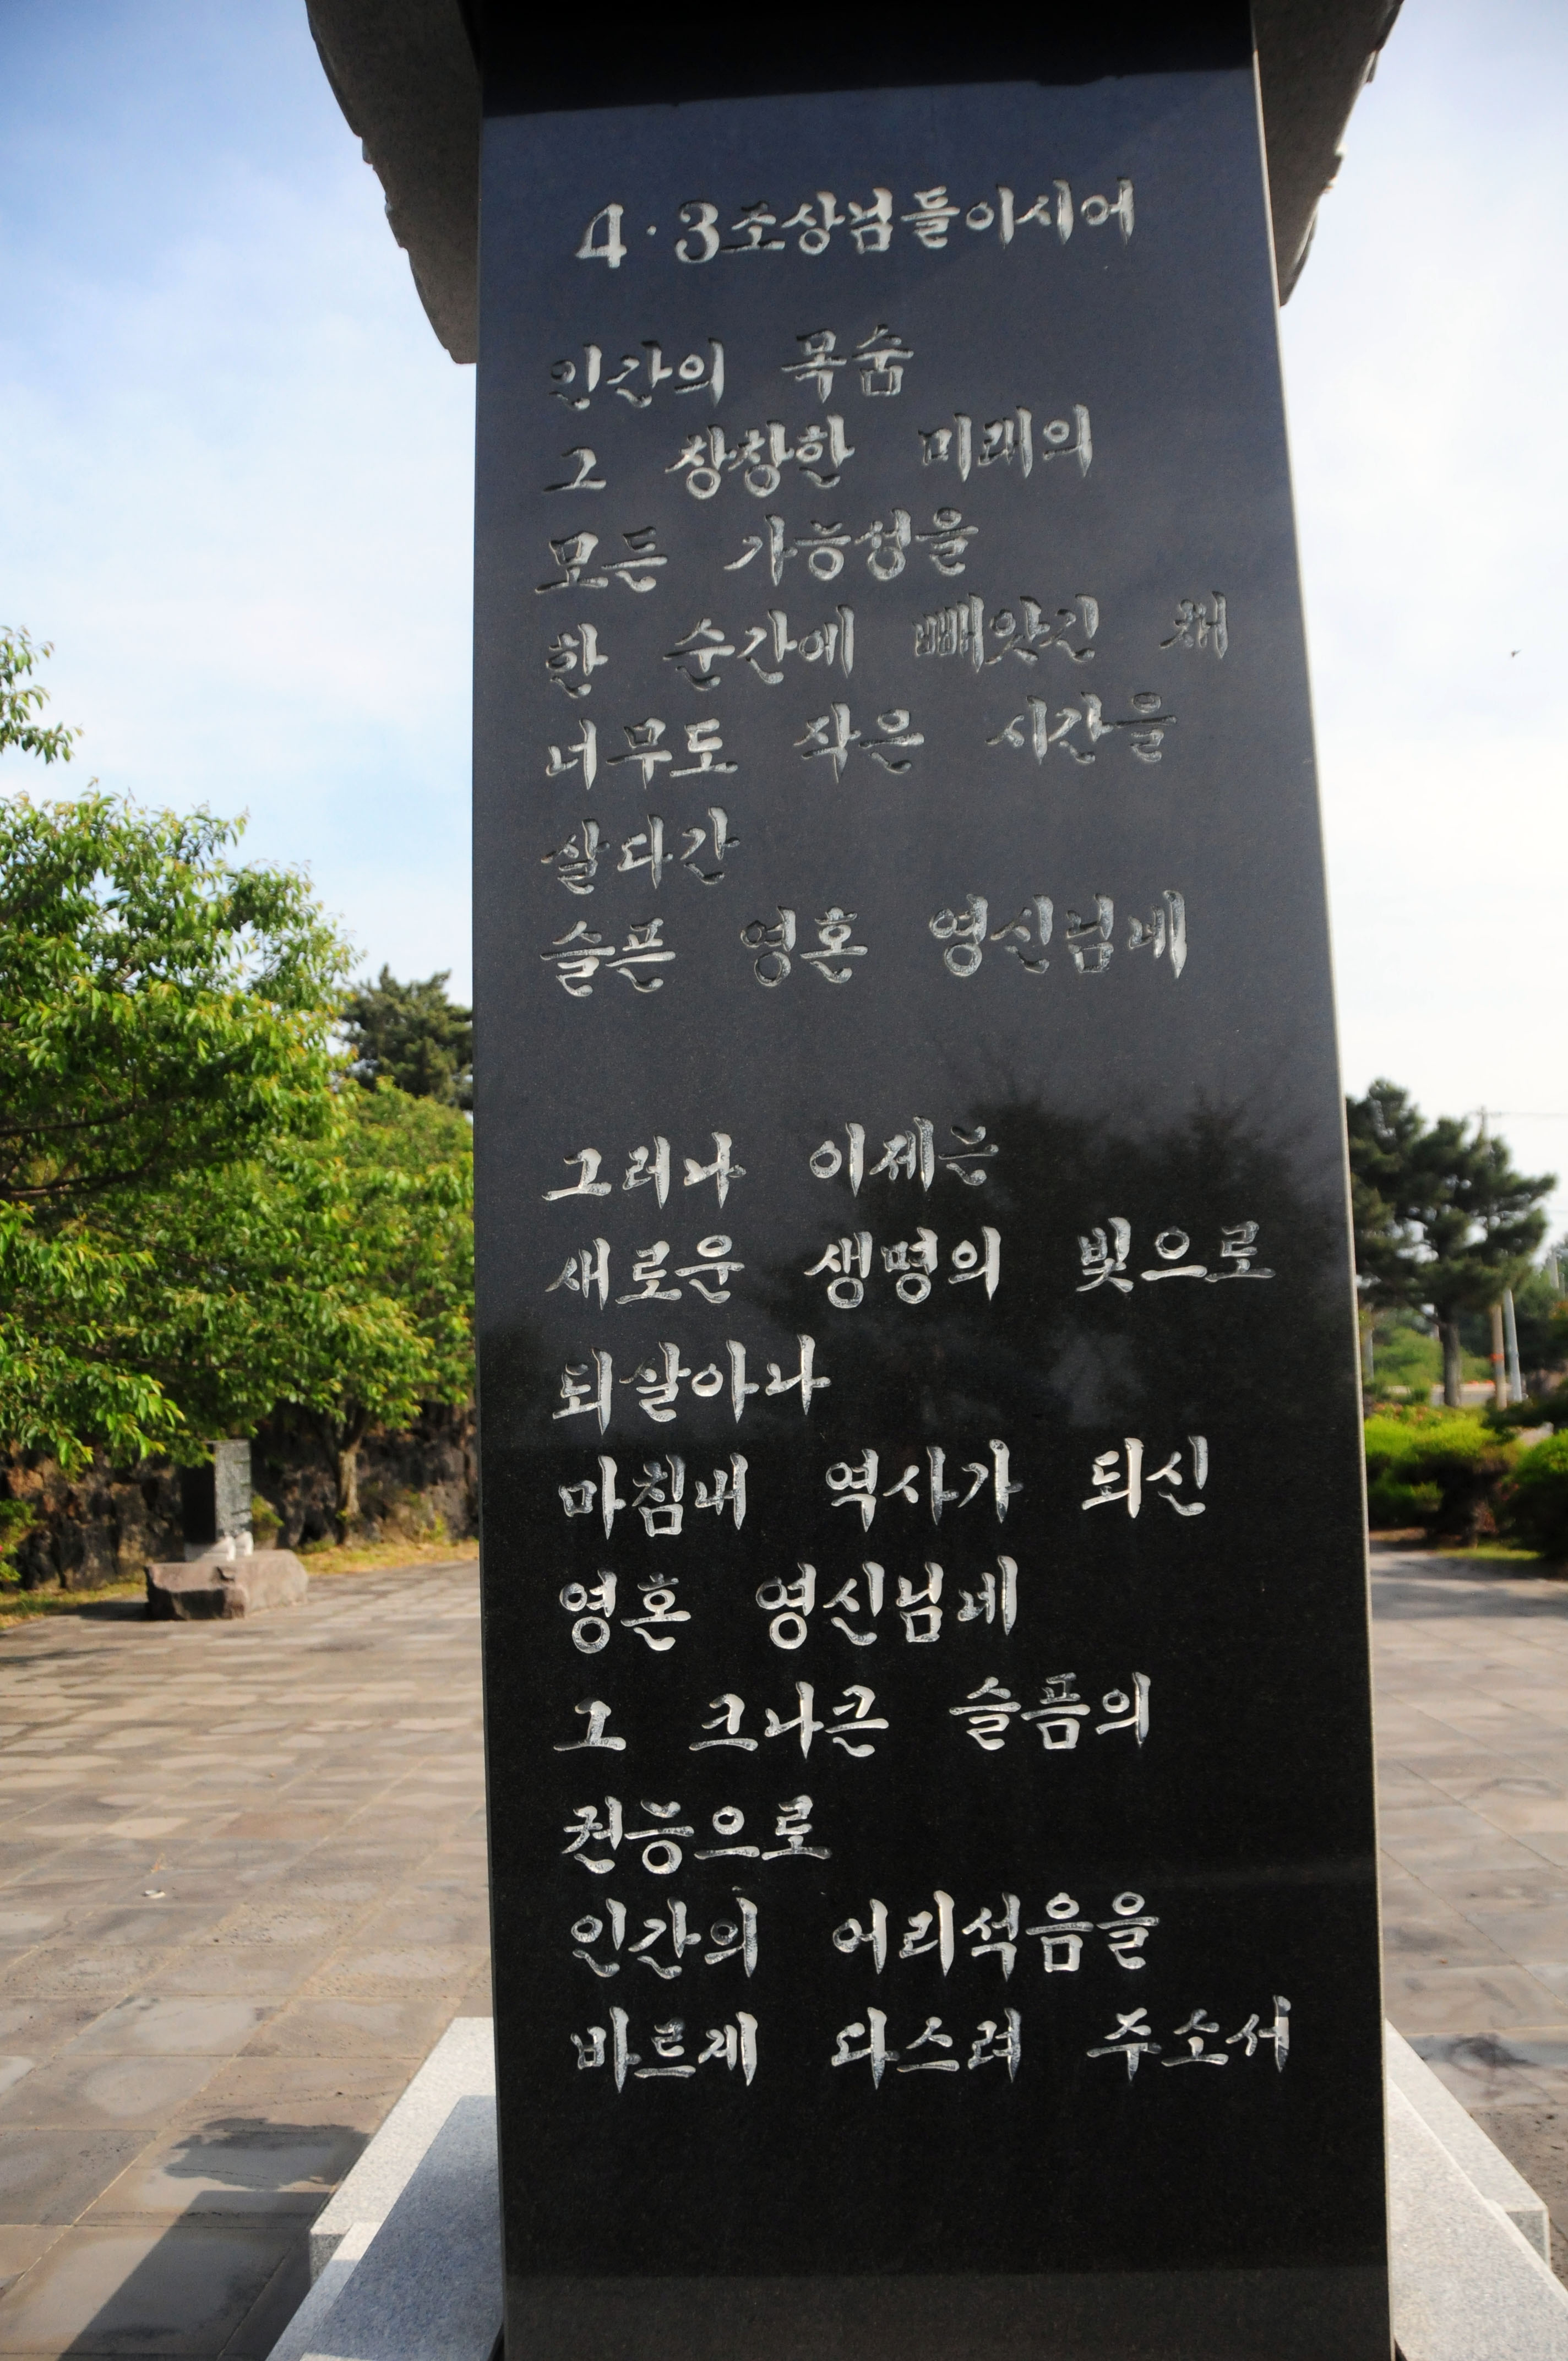 4·3조상님들이시어
인간의 목숨
그 창창한 미래의
모든 가능성을
한 순간에 빼앗긴 채
너무도 작은 시간을
살다간
슬픈 영혼 영신님네
그러나 이제는
새로운 생명의 빛으로
되살아나
마침내 역사가 되신
영혼 영신님네
그 크나큰 슬픔의
권능으로
인간의 어리석음을
바르게 다스려 주소서